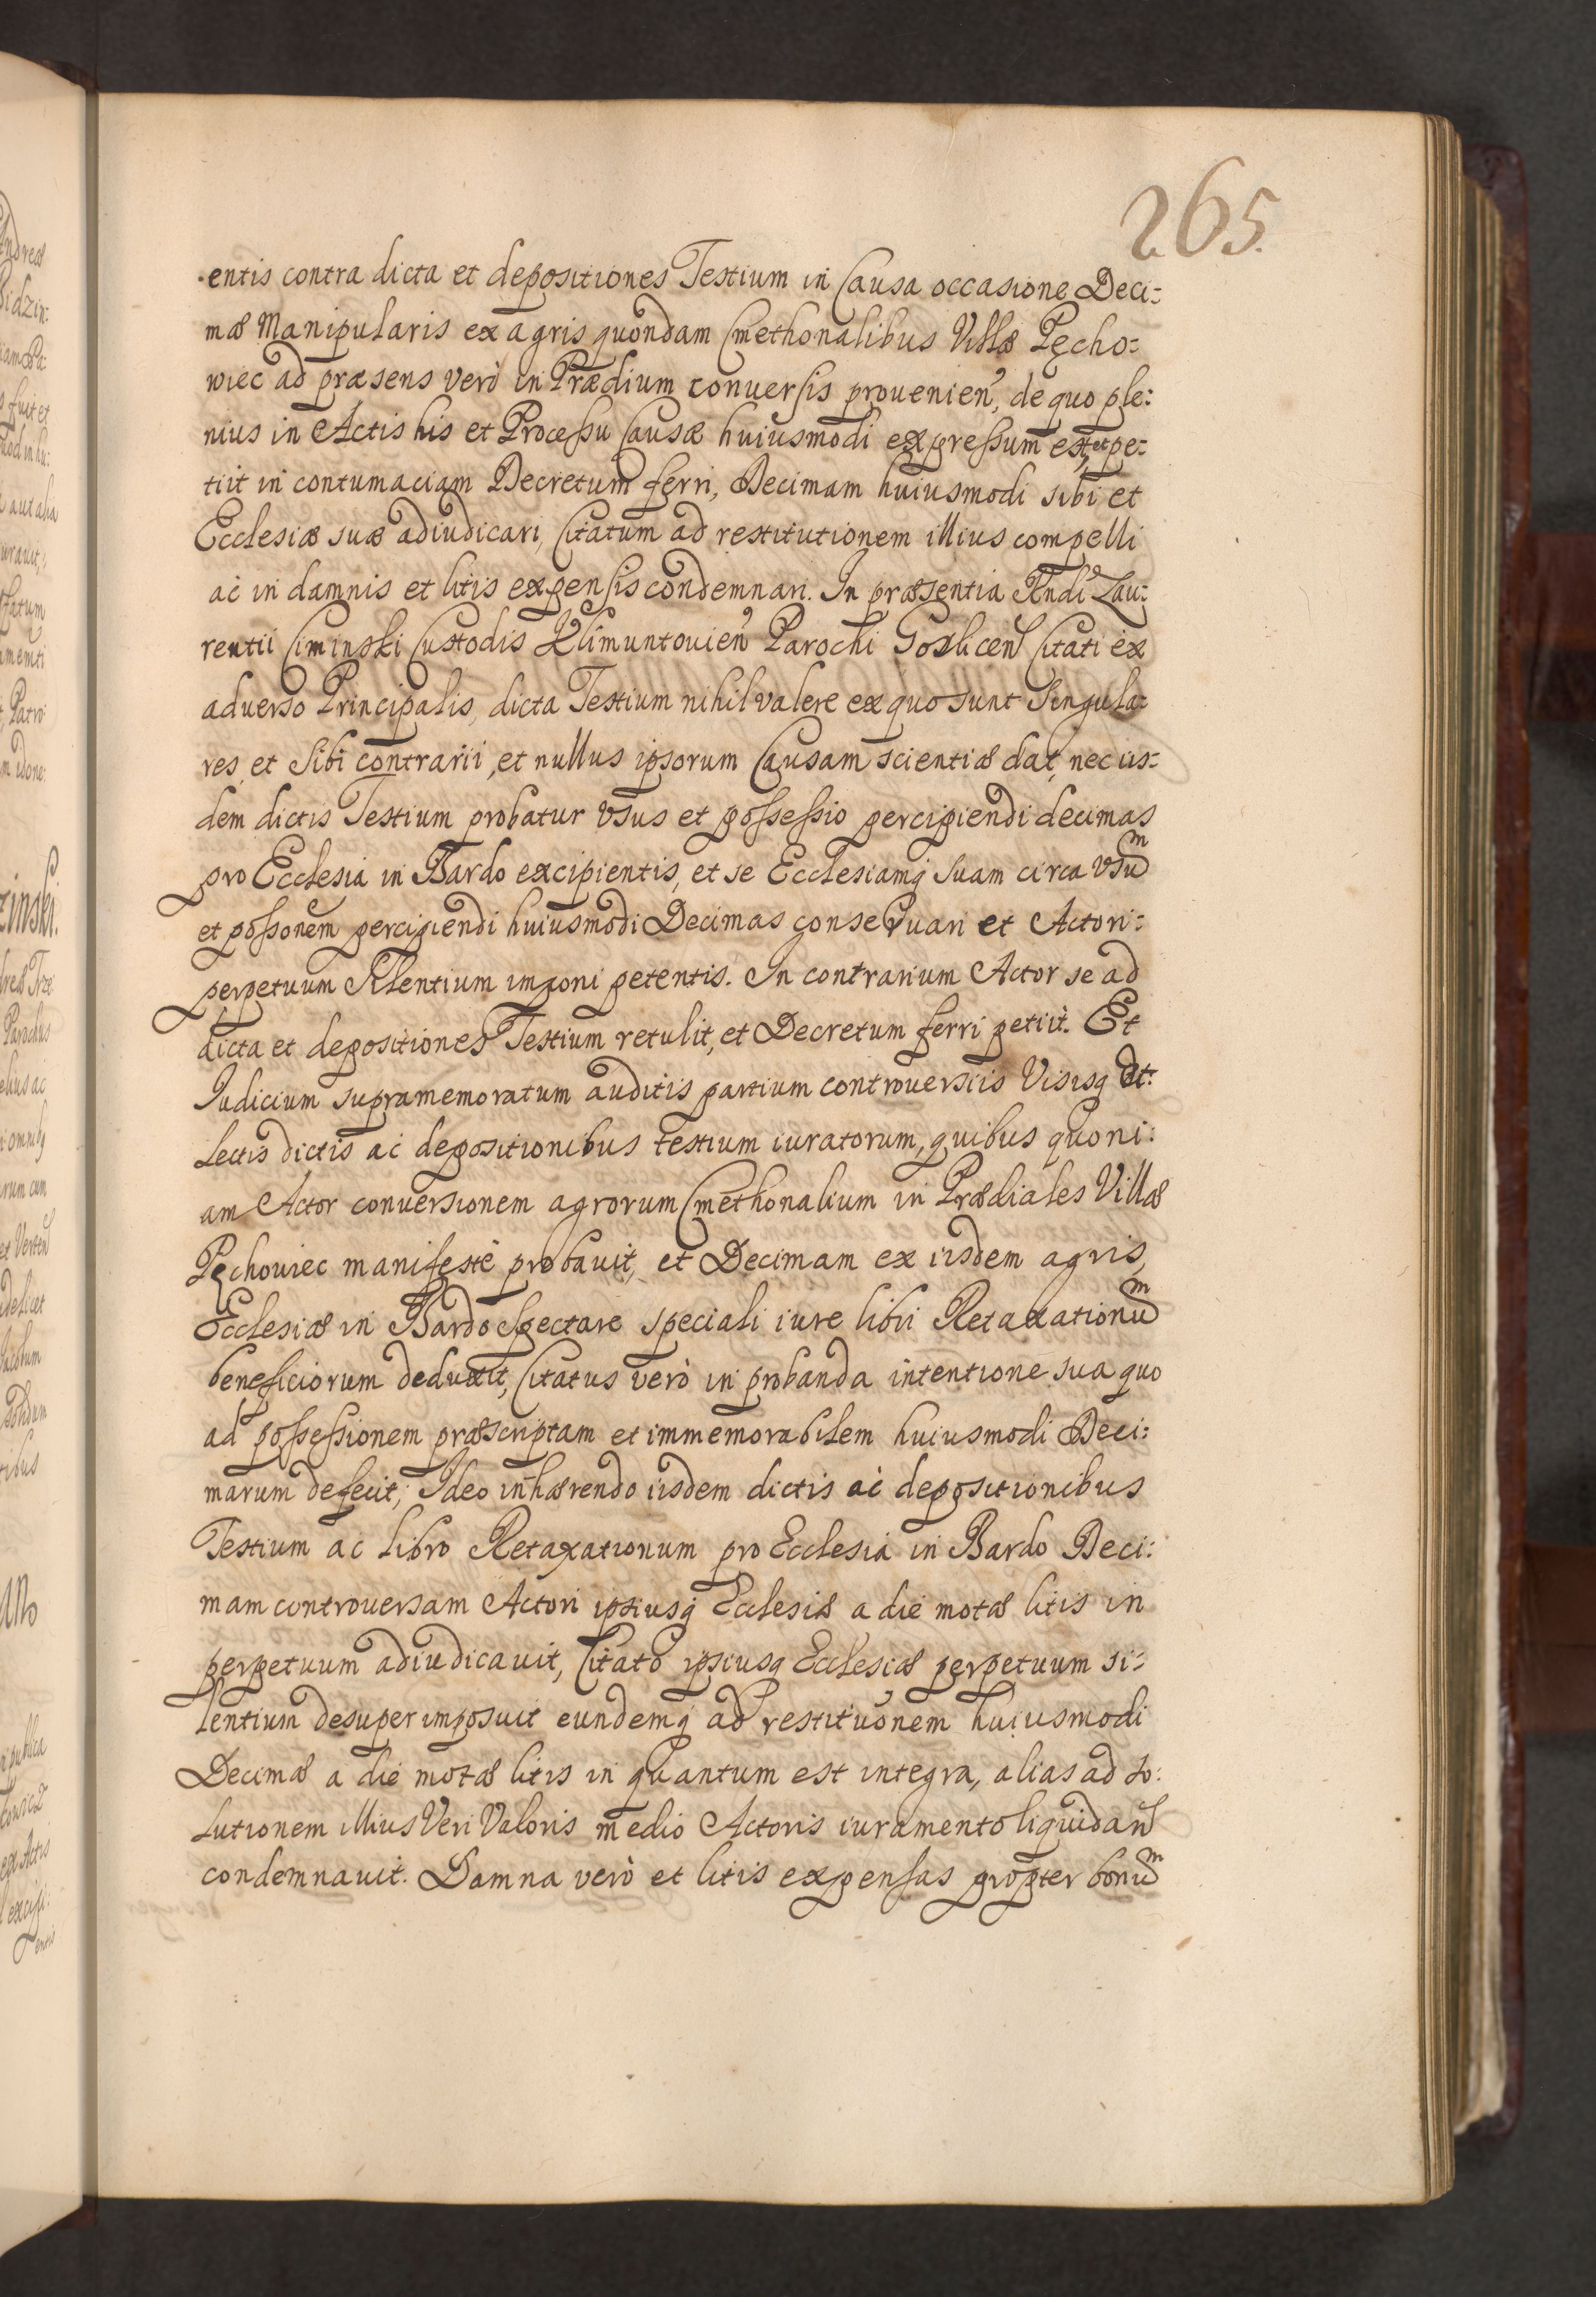 265.
entis contra dicta et depositiones Testium in Causa occasione Deci:
mæ Manipularis ex agris quondam Cmethonalibus Villæ Pęcho:
wiec ad præsens verò in Prædium conuersis prouenien̄, de quo ple:
nius in Actis his et Processu Causæ huiusmodi expressum est, et pe:
tiit in contumaciam Decretum ferri, Decimam huiusmodi sibi et
Ecclesiæ suæ adiudicari, Citatum ad restitutionem illius compelli
ac in damnis et litis expensis condemnari. In præsentia Rndi Lau:
rentii Ciminski Custodis Klimuntouien̄ Parochi Goslicen̄ Citati ex
aduerso Principalis, dicta Testium nihil valere ex quo sunt Singula:
res et Sibi contrarii, et nullus ipsorum Causam scientiæ dat, nec iis:
dem dictis Testium probatur vsus et possessio percipiendi decimas
pro Ecclesia in Bardo excipientis, et se Ecclesiamq suam circa vsuᵐ
et possonem percipiendi huiusmodi Decimas conseruari et Actori:
perpetuum Silentium imponi petentis. In contrarium Actor se ad
dicta et depositiones Testium retulit, et Decretum ferri petiit. Et
Iudicium supramemoratum auditis partium controuersiis Visisq et:
Lectis dictis ac depositionibus testium iuratorum, quibus quoni:
am Actor conuersionem agrorum Cmethonalium in Prædiales Villæ
Pęchouiec manifestè probauit, et Decimam ex iisdem agris
Ecclesiæ in Bardo Spectare speciali iure libri Retaxationuᵐ
beneficiorum deduxit, Citatus verò in probanda intentione sua quo
ad possessionem præscriptam et immemorabilem huiusmodi Deci:
marum defecit; Ideo inhærendo iisdem dictis ac depositionibus
Testium ac libro Retaxationum pro Ecclesia in Bardo Deci:
mam controuersam Actori ipsiusq Ecclesiæ a die motæ litis in
perpetuum adiudicauit, Citato ipsiusq Ecclesiæ perpetuum si:
lentium desuper imposuit eundemq ad restituonem huiusmodi
Decimæ a die motæ litis in quantum est integra, alias ad so:
lutionem illius Veri Valoris medio Actoris iuramento liquidan̄
condemnauit. Damna verò et litis expensas propter bonuᵐ